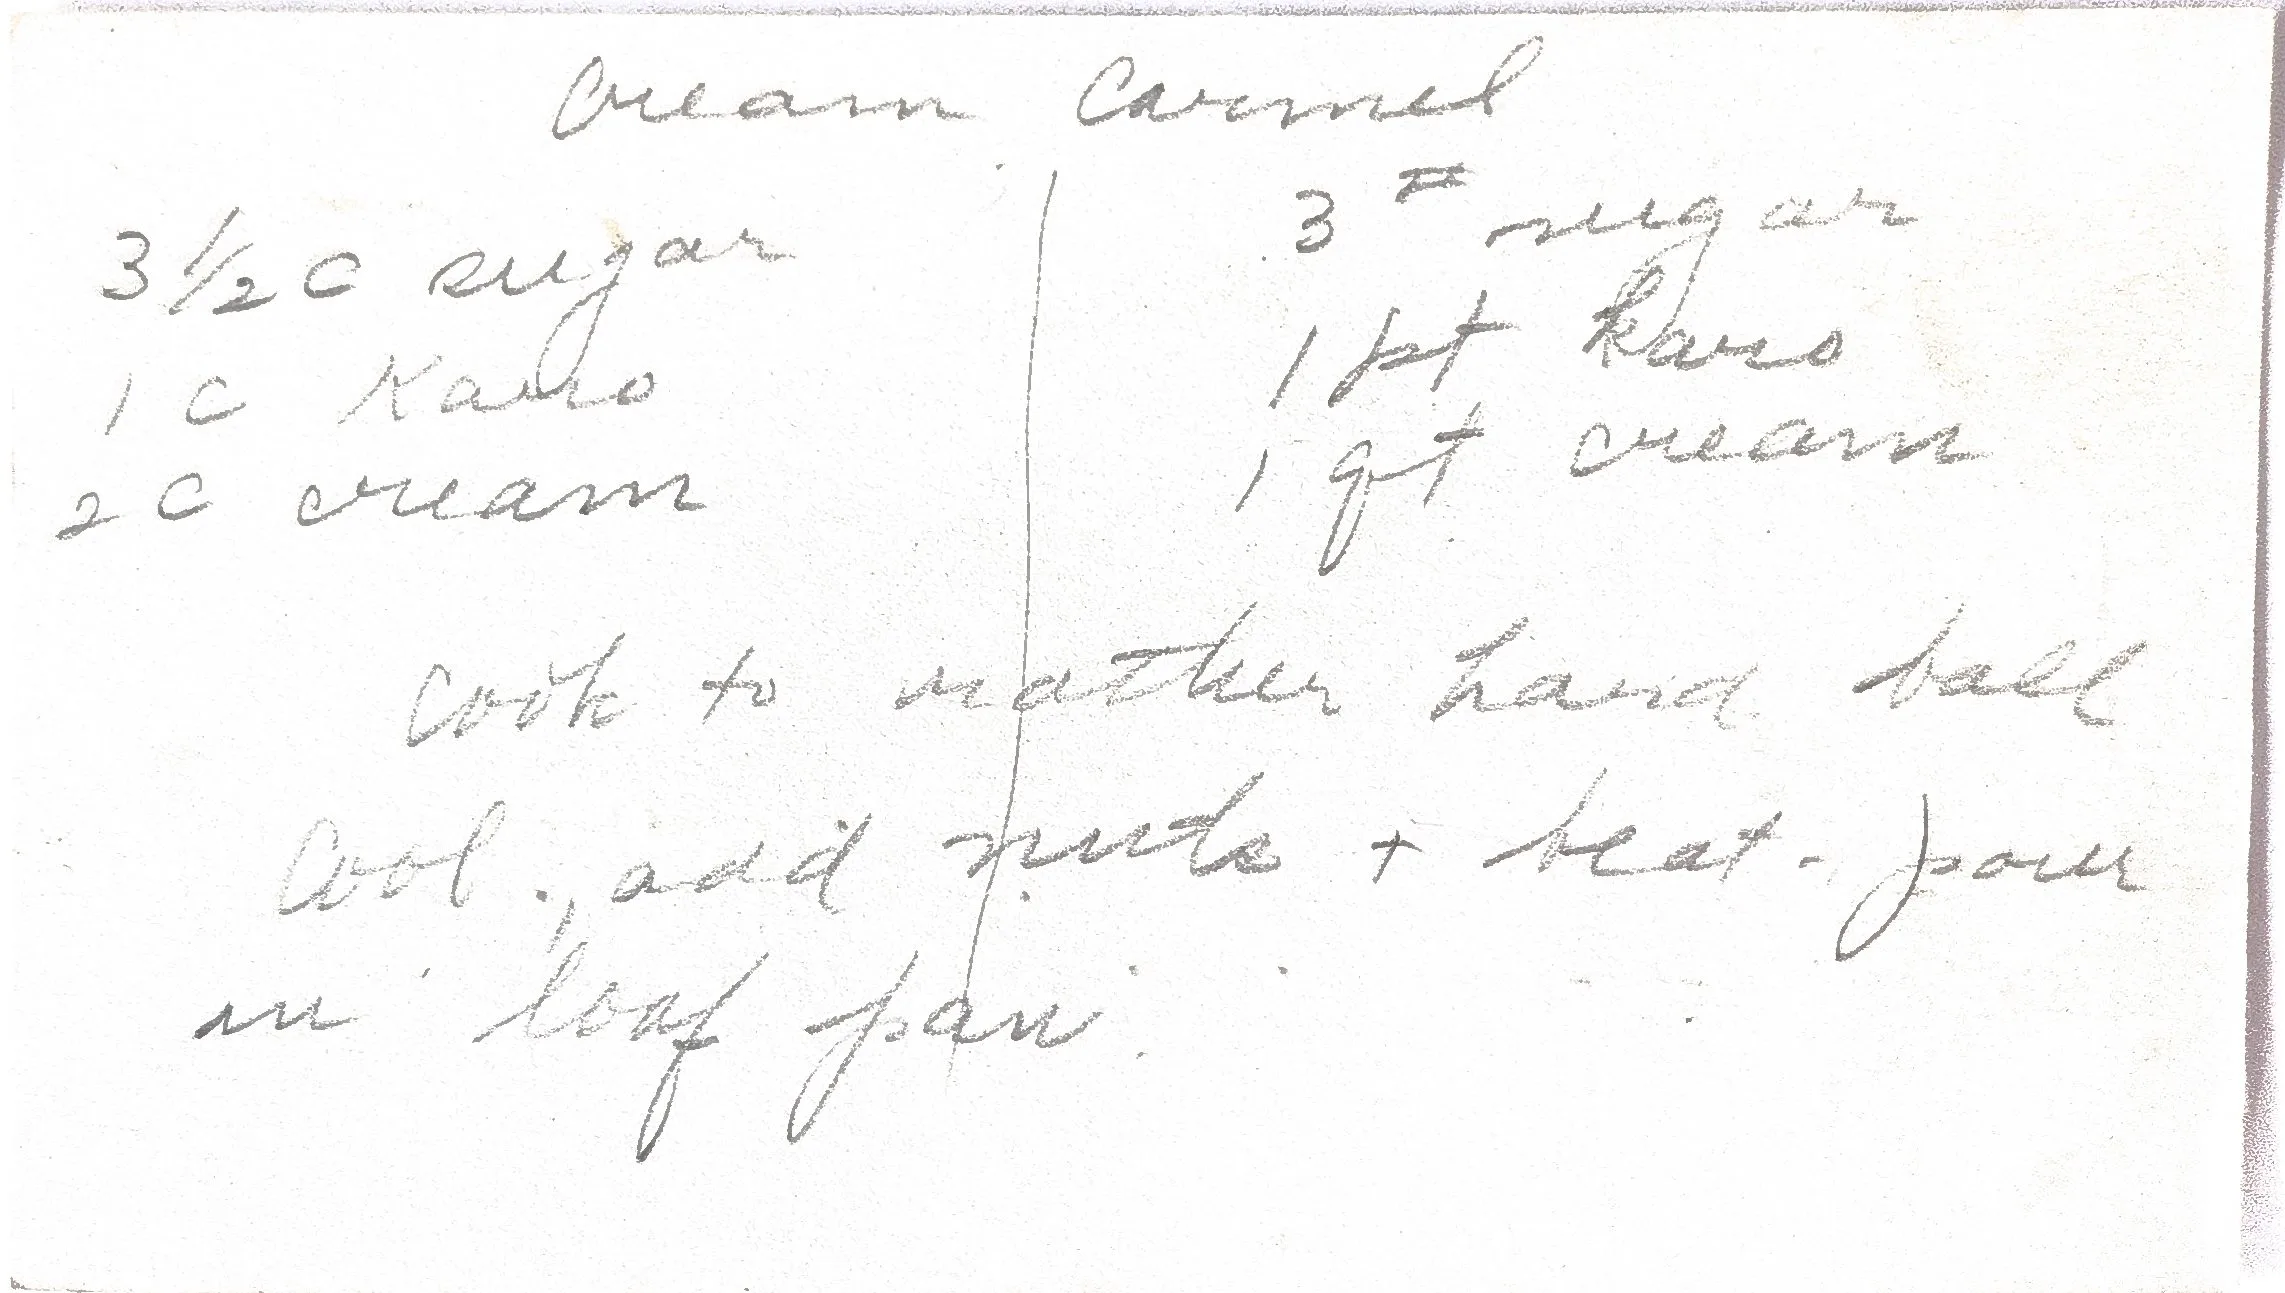 Cream Carmel
3 1/2 C sugar
1 C Karo
2 C cream
3 # sugar
1 pt Karo
1 qt cream
Cook to rather hard ball
Cool, add nuts + beat - pour
in loaf pan.